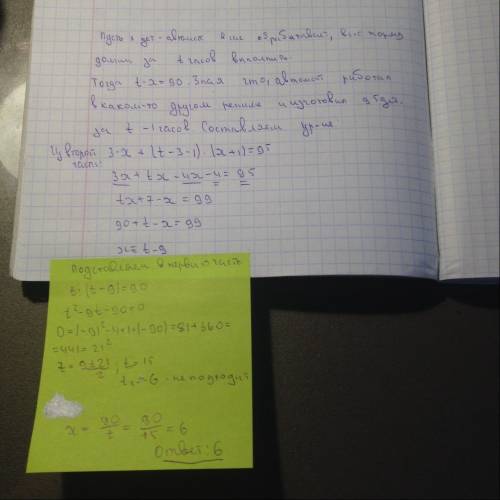 Пусть x дет - автомат в час обрабатывает, всю норму
должен за t часов выполнить.
Тогда t·x=90. Зная что, автомат работал
в каком-то другом режиме и изготовил 95 дет.
за t-1 часов Составляем ур-ие.
Из второй части: 3·x + (t-3-1)·(x+1)=95
3x+tx-4x-4=95
tx+t-x=99
90+t-x=99
x=t-9
Подставляем в первую часть
t·(t-9)=90
t²-9t-90=0
D=(-9)²-4·1·(-90)=81+360=
=441=21²
t=9±21/2; t=15
t₂=-6 - не подходит
x = 90/t = 90/15 = 6
Ответ: 6